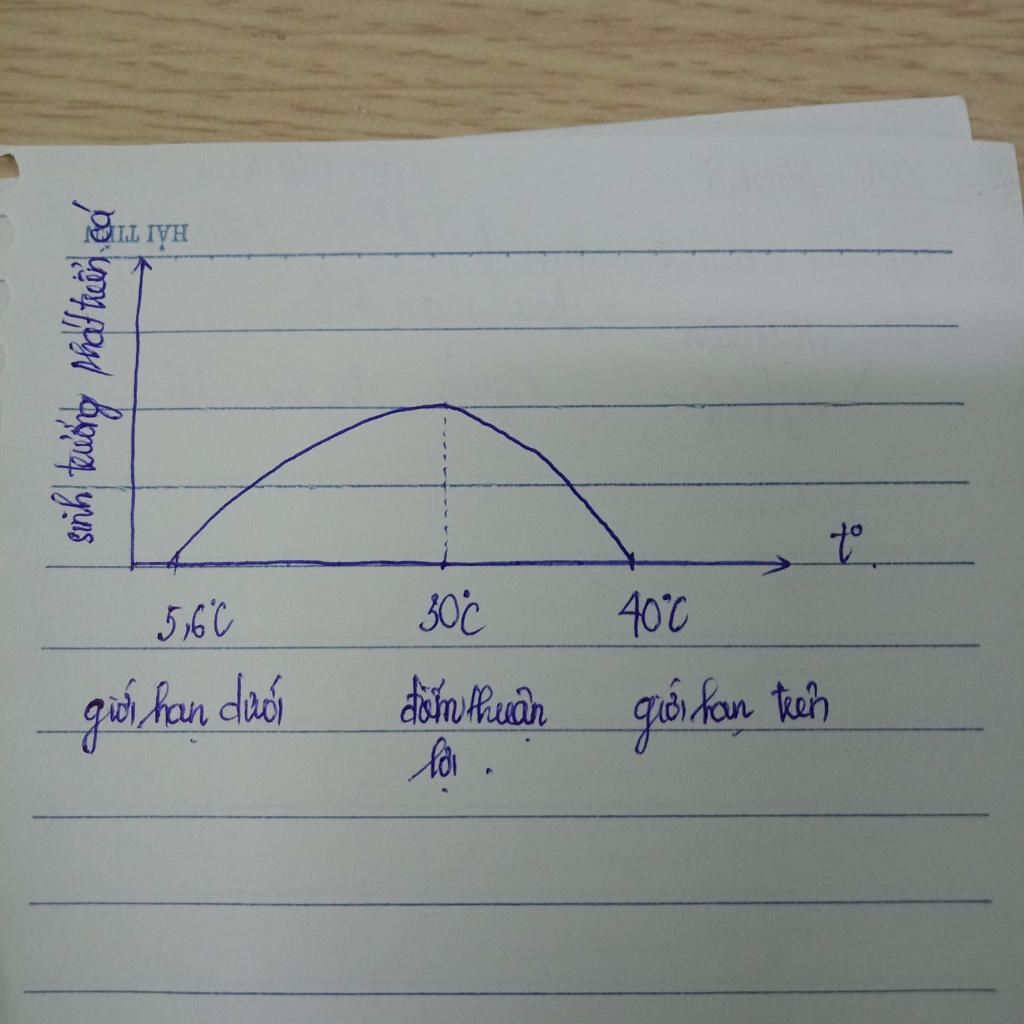 HẢI TIẾN
sinh trưởng phát triển cá
t°
5,6°C 30°C 40°C
giới hạn dưới điểm thuận giới hạn trên
lợi.